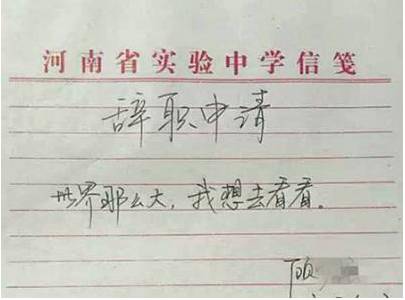 河南省实验中学信笺
辞职申请
世界那么大，我想去看看。
顾